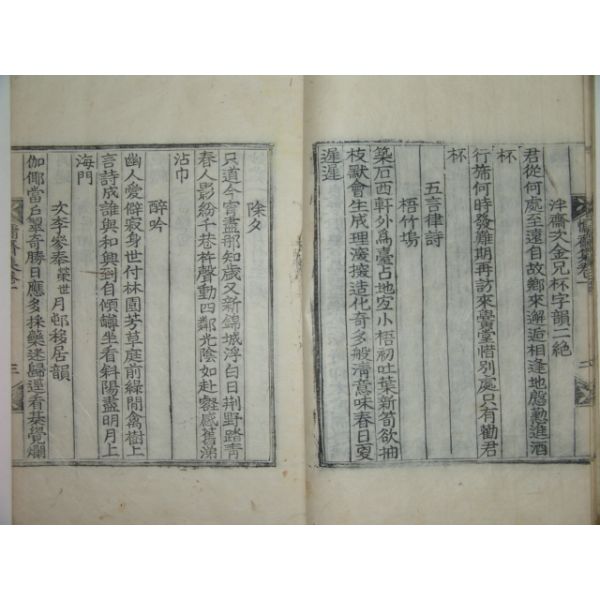 泮齋次金兄杯字韻二絶
君從何處至遠自故鄉來邂逅相逢地慇懃進酒
杯
行旆何時發難期再訪來黌堂惜別處只有勸君
杯
五言律詩
梧竹塢
築石西軒外爲臺占地宜小梧初吐葉新筍欲抽
枝默會生成理深探造化奇多般淸意味春日夏
遲遲
除夕
只道今宵盡那知歲又新錦城浮白日荆野踏靑
春人影紛千巷杵聲動四鄰光陰如赴壑感舊涕
沾巾
醉吟
幽人愛僻寂身世付林園芳草庭前綠閒禽樹上
言詩成誰與和興到自傾罇坐看斜陽盡明月上
海門
次李參奉榮世月邨移居韻
伽倻當戶翠奇勝日應多採藥迷歸逕看碁覺爛